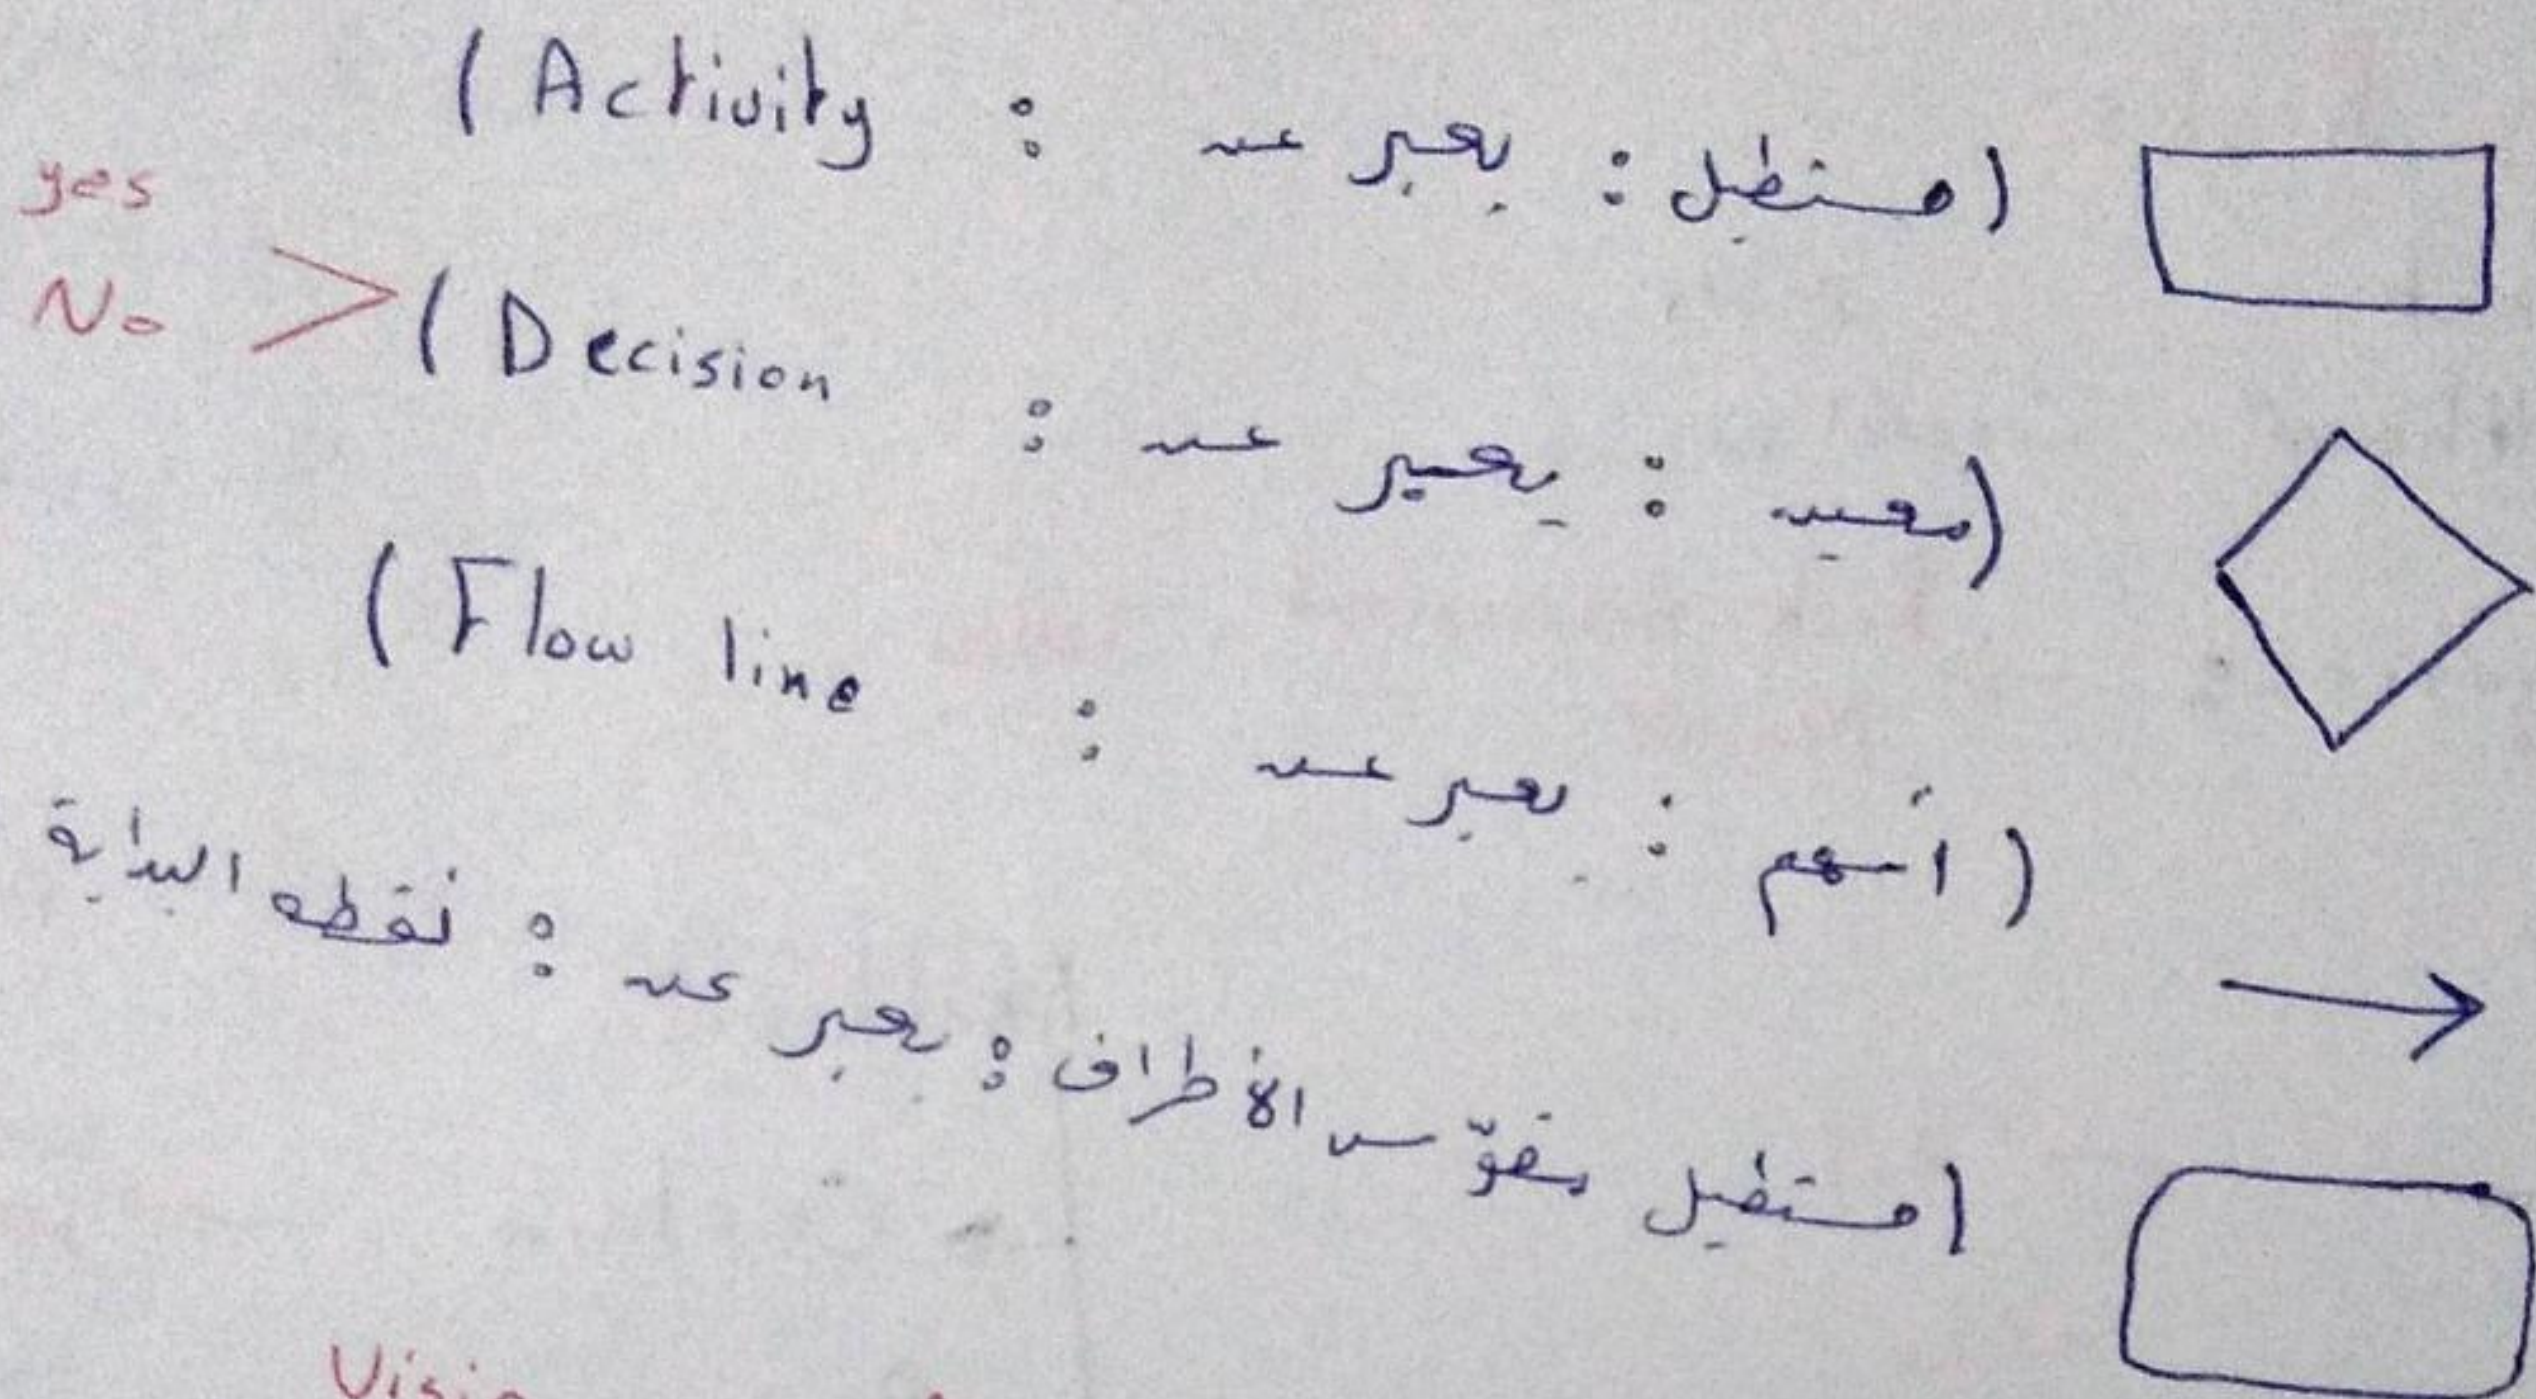 (مستطيل : يعبر عن : Activity)
(معين : يعبر عن : Decision) > yes No
(أسهم : يعبر عن : Flow line)
(مستطيل مقوّس الأطراف : يعبر عن : نقطه البداية